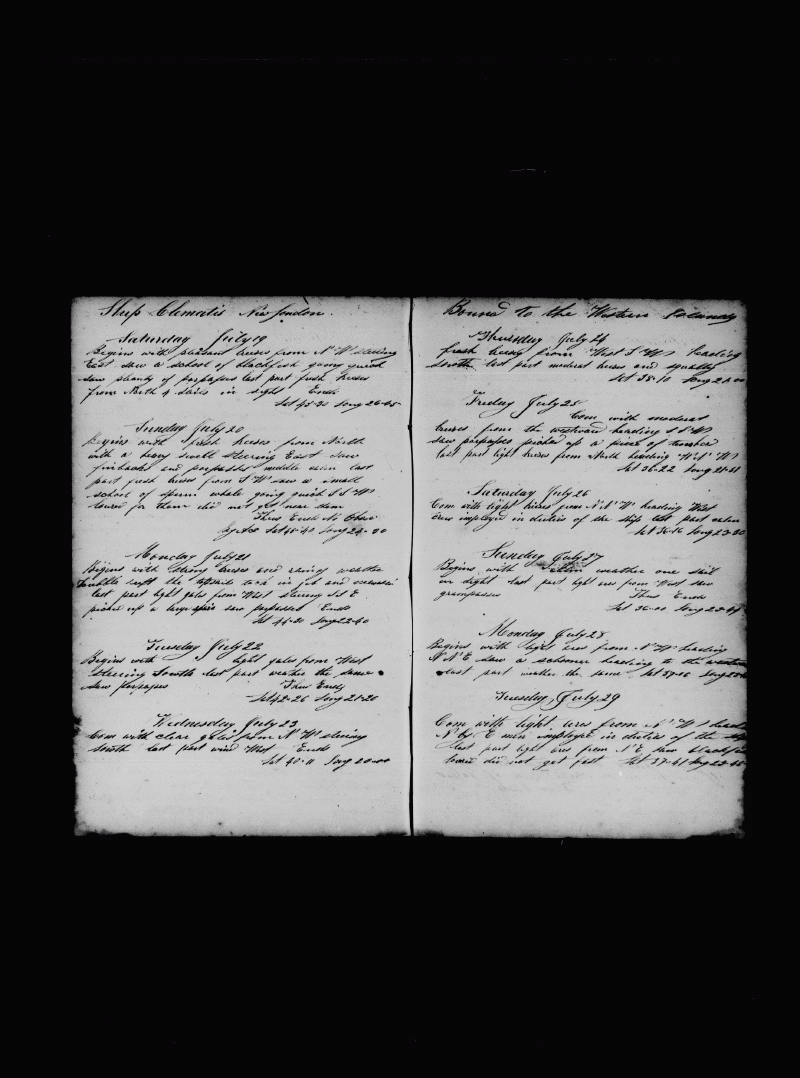 Ship Clematis New London
Saturday July 19
Begins with pleasant brases from N W steering
East saw a school of blackfish going quick
saw plenty of porpases last part fresh brases
from North 4 Sails in sight Ends
Lat 45-20 Long 26-05
Sunday July 20
Begins with fresh brases from North
with a heavy swell steering East Saw
finbacks and porpases middle calm last
part fresh brases from S W saw a small
school of sperm whale going quick S S W
lowred for them did not get near them
Thus Ends No Chro
by Acc Lat 45-40 Long 24-00
Monday July 21
Begins with strong brases and rainey weather
double reeft the topsails took in jib and
last part light gales from West steering S S E
picked up a large spar saw porpases Ends
Lat 44-20 Long 22-40
Tuesday July 22
Begins with light gales from West
steering South last part weather the same
saw porpases Thus Ends
Lat 42-26 Long 21-20
Wednesday July 23
Com with clear gales from N W steering
South last part wind West Ends
Lat 40-11 Long 20-00
Bound to the Western Islands
Thursday July 24
fresh brases from West S W heading
South last part moderat brases and squally
Lat 38-10 Long 21-00
Friday July 25
Com with moderat
brases from the westward heading S S W
saw porpases picked up a piece of timber
last part light brases from North heading W S W
Lat 36-22 Long 21-21
Saturday July 26
Com with light brases from N N W heading West
crew employed in duties of the ship last part calm
Lat 36-16 Long 23-20
Sunday July 27
Begins with calm weather one sail
in sight last part light ares from West saw
grampases Thus Ends
Lat 36-00 Long 23-44
Monday July 28
Begins with light ares from N W heading
N N E saw a schooner heading to the westward
last part weather the same Lat 37-06 Long
Tuesday July 29
Com with light ares from N W heading
N by E men employed in duties of the ship
last part light ares from N E saw blackfish
lowred did not get fast Lat 37-41 Long